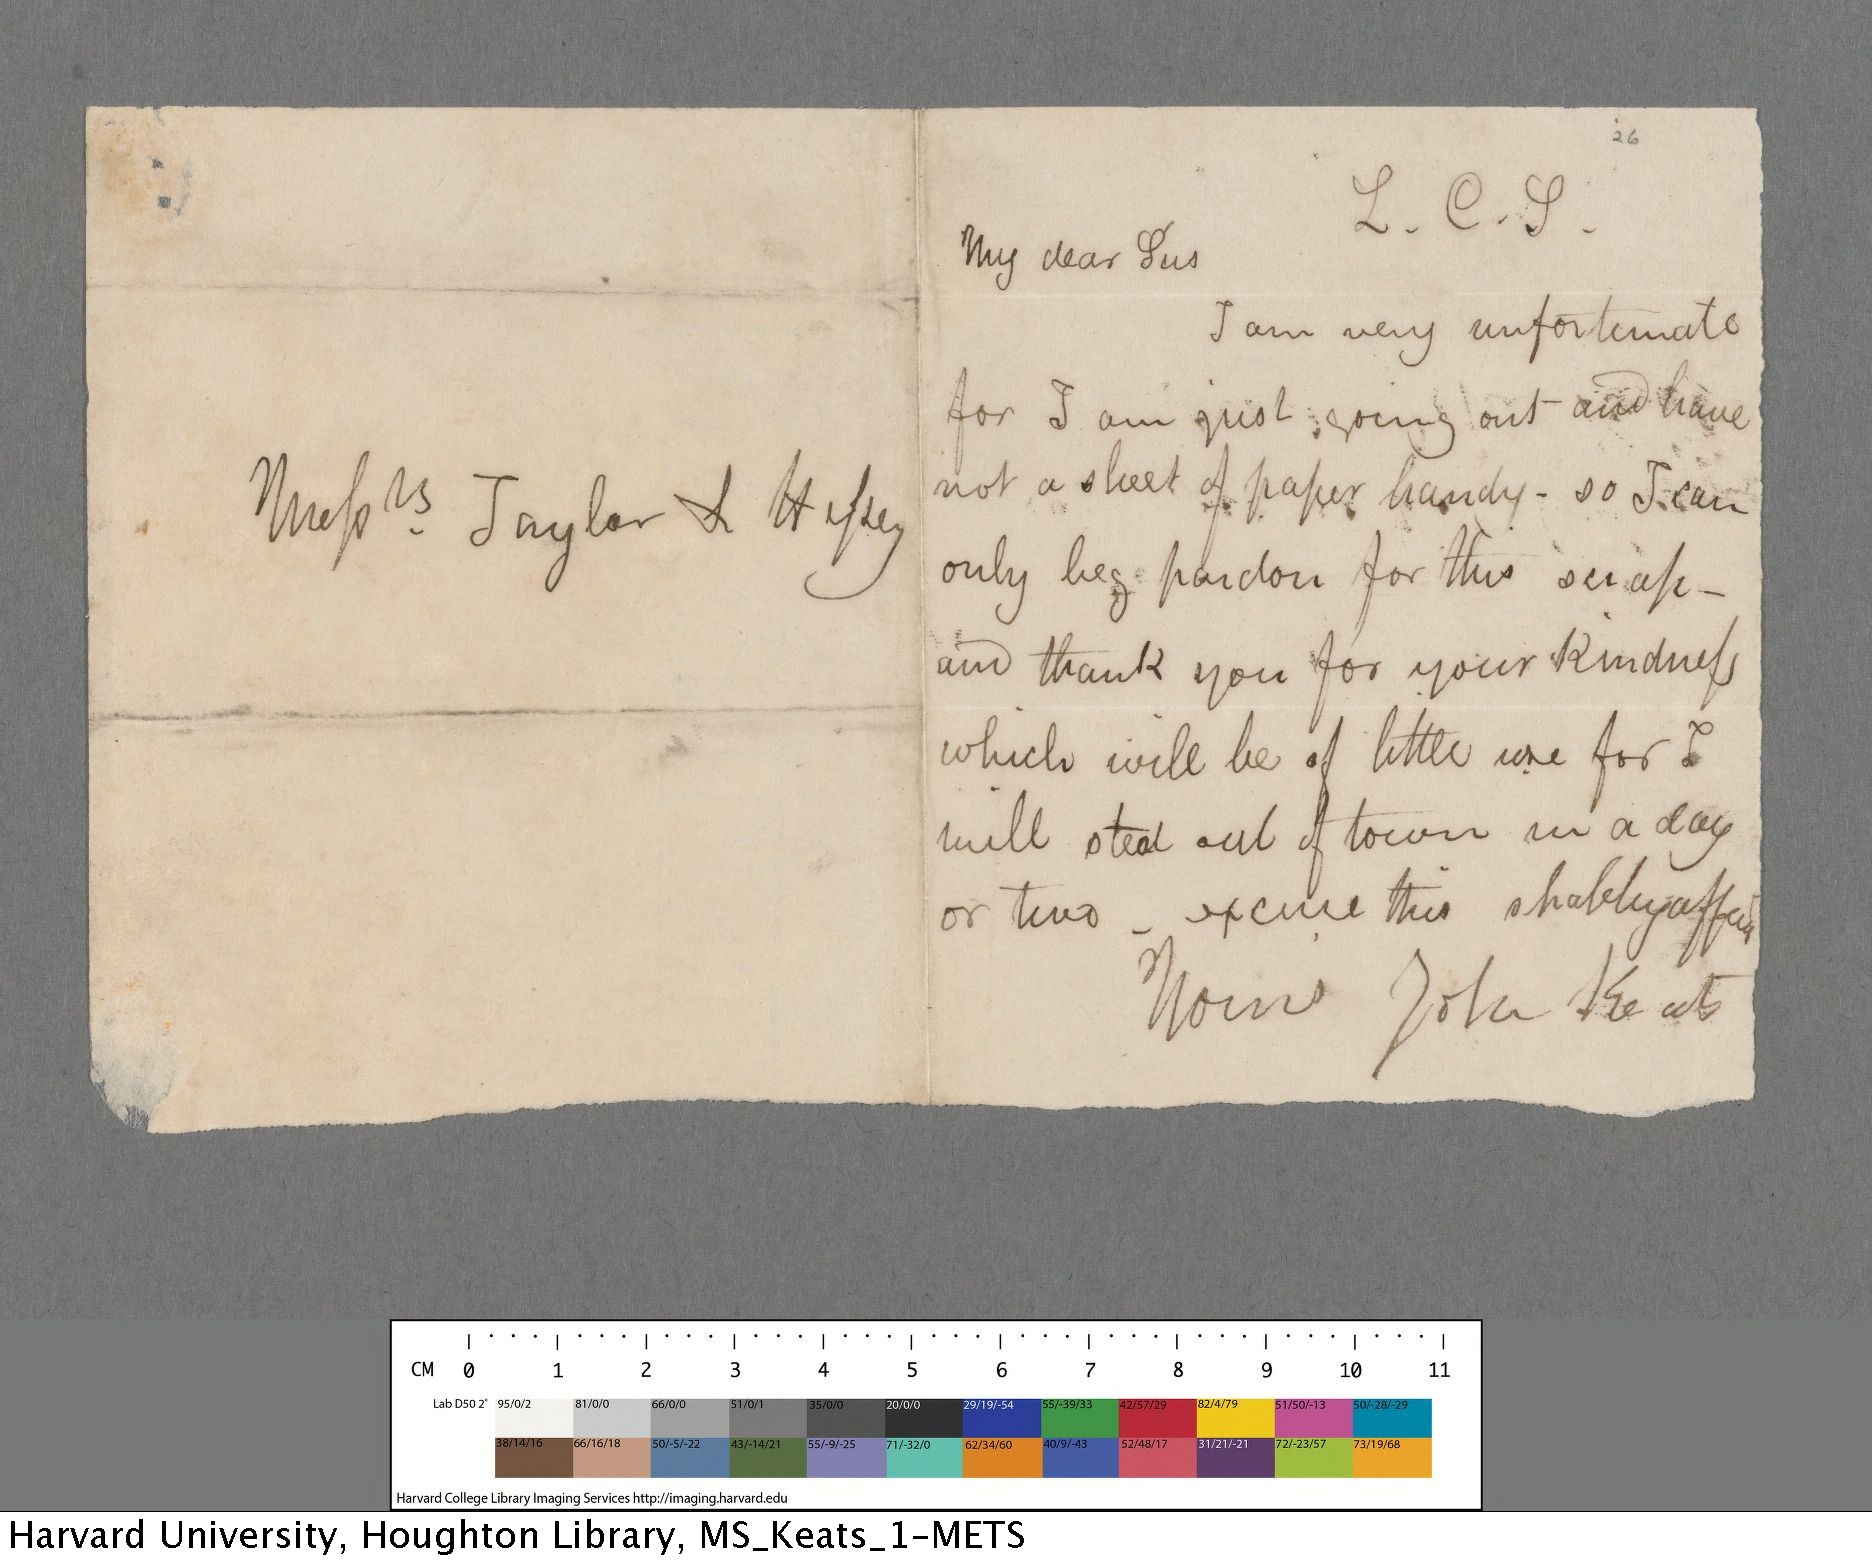 26
L. C. S.
My dear Sirs
I am very unfortunate
for I am just going out and have
not a sheet of paper handy - so I can
only beg pardon for this scrap -
and thank you for your kindness
which will be of little use for I
will steal out of town in a day
or two - excuse this shabby affair
Yours John Keats
Messrs. Taylor & Hessey
CM 0 1 2 3 4 5 6 7 8 9 10 11
Lab D50 2° 95/0/2 81/0/0 66/0/0 51/0/1 35/0/0 20/0/0 29/19/-54 55/-39/33 42/57/29 82/4/79 51/50/-13 50/-28/-29
38/14/16 66/16/18 50/-5/-22 43/-14/21 55/-9/-25 71/-32/0 62/34/60 40/9/-43 52/48/17 31/21/-21 72/-23/57 73/19/68
Harvard College Library Imaging Services http://imaging.harvard.edu
Harvard University, Houghton Library, MS_Keats_1-METS